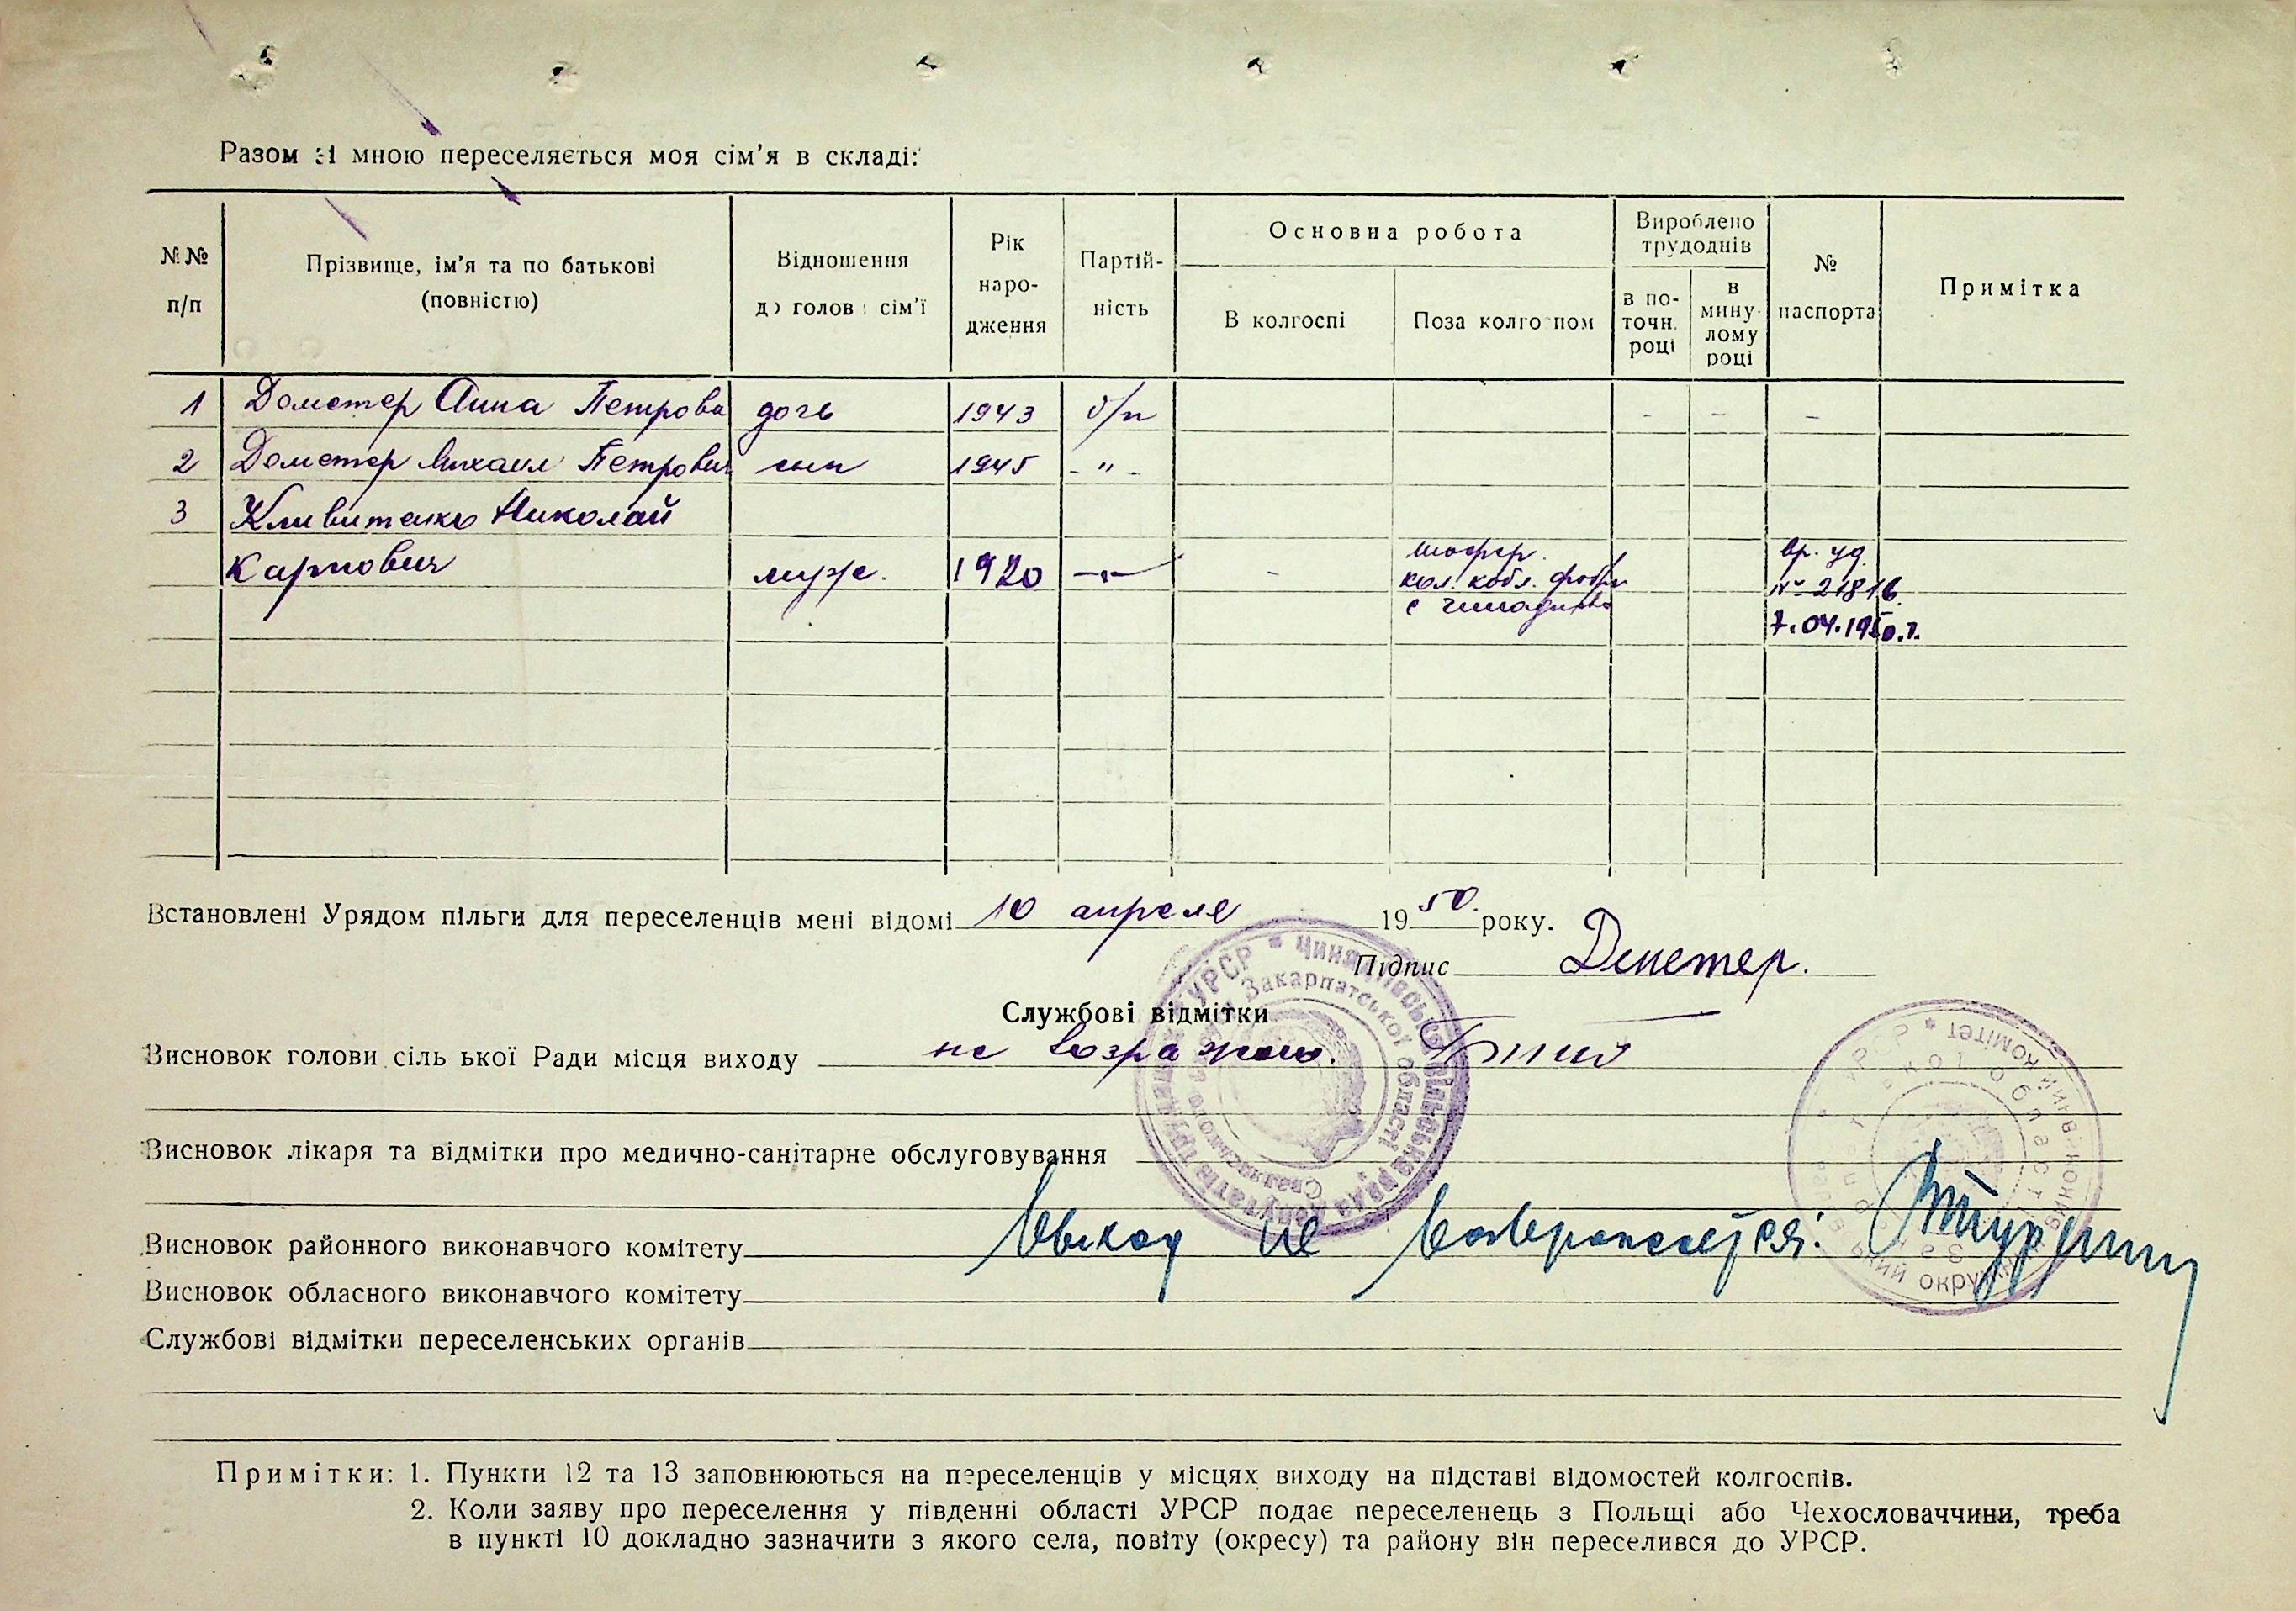 Разом зі мною переселяється моя сім'я в складі:
№№ п/п
Прізвище, ім'я та по батькові (повністю)
Відношення до голови сім'ї
Рік наро-дження
Партій-ність
Основна робота
В колгоспі
Поза колгоспом
Вироблено трудоднів
в по-точн. році
в мину-лому році
№ паспорта
Примітка
1 Деметер Анна Петровн дочь 1943 б/п - - -
2 Деметер Михаил Петрович сын 1945 - " -
3 Николай
Карпович муж. 1920 — " — - шофер. вр. уд. № 21816. 7.04.1950.г.
Встановлені Урядом пільги для переселенців мені відомі 10 апреля 1950 року.
Підпис Деметер.
Службові відмітки
Висновок голови сільської Ради місця виходу не возражаю.
Висновок лікаря та відмітки про медично-санітарне обслуговування
Висновок районного виконавчого комітету Выход не
Висновок обласного виконавчого комітету
Службові відмітки переселенських органів
Примітки: 1. Пункти 12 та 13 заповнюються на переселенців у місцях виходу на підставі відомостей колгоспів.
2. Коли заяву про переселення у південні області УРСР подає переселенець з Польщі або Чехословаччини, треба
в пункті 10 докладно зазначити з якого села, повіту (окресу) та району він переселився до УРСР.